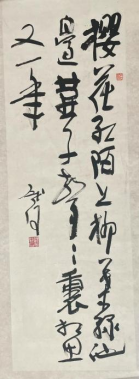 櫻花红陌上柳葉绿池
邊燕子声々裏相思
又一年